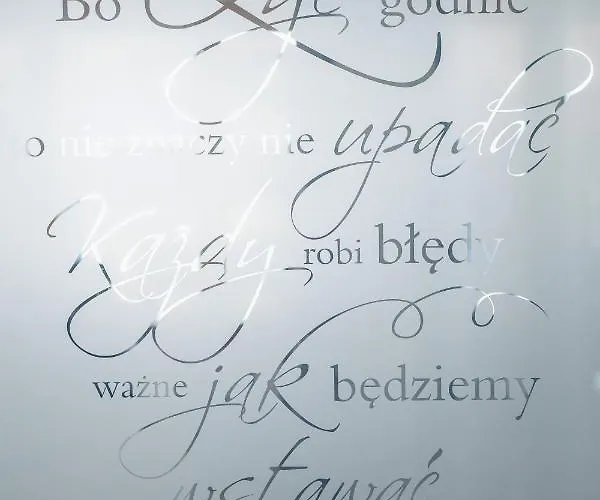 Bo żyć godnie
to nie znaczy nie upadać
Każdy robi błędy
ważne jak będziemy
wstawać